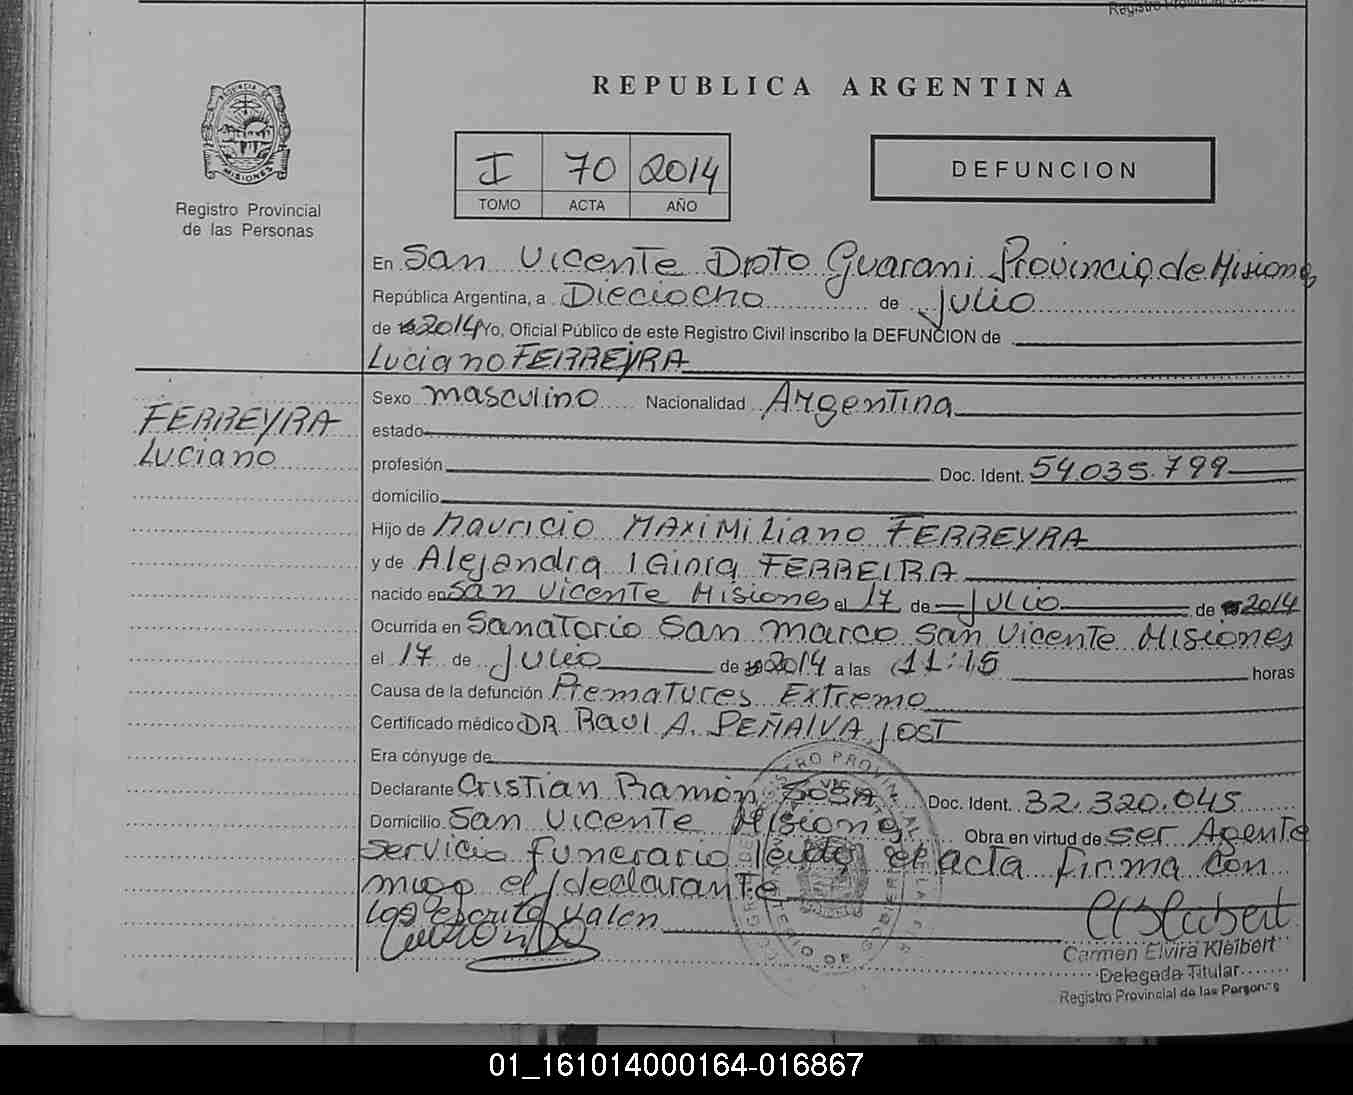 REPUBLICA ARGENTINA
PROVINCIA DE
MISIONES
Registro Provincial
de las Personas
I 70 2014
TOMO ACTA AÑO
DEFUNCION
En San Vicente Dpto Guarani Provincia de Misiones
República Argentina, a Dieciocho de Julio
de 2014 Yo, Oficial Público de este Registro Civil inscribo la DEFUNCION de
Luciano FERREYRA
FERREYRA
Luciano
Sexo masculino Nacionalidad Argentina
estado
profesión Doc. Ident. 54.035.799
domicilio
Hijo de Mauricio MAXiMiLiano FERREYRA
y de Alejandra IGinia FERREIRA
nacido en San Vicente Misiones el 17 de Julio de 2014
Ocurrida en Sanatorio San Marco San Vicente Misiones
el 17 de Julio de 2014 a las 11:15 horas
Causa de la defunción Prematures Extremo
Certificado médico DR Raul A. PEÑALVA JOST
Era cónyuge de
Declarante Cristian Ramón SOSA Doc. Ident. 32.320.045
Domicilio San Vicente Misiones Obra en virtud de ser Agente
Servicio funerario leida el acta firma con
migo el declarante
Lo escrito Valen
Carmen Elvira Kleibert
Delegada Titular
Registro Provincial de las Personas
01_161014000164-016867